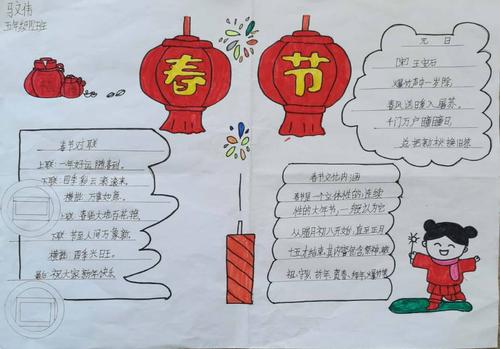 马文倩
五年级四班
春节
元日
[宋]王安石
爆竹声中一岁除
春风送暖入屠苏
千门万户曈曈日
总把新桃换旧符
春节对联
上联:一年好运随春到
下联:四季彩云滚滚来
横批:万事如意
上联:春临大地百花艳
下联:节至人间万象新
横批:四季兴旺
祝大家新年快乐
春节文化内涵
春节是一个立体性的,连续
性的大年节,一般认为它
从腊月初八开始,直至正月
十五才结束,其内容包含祭神,敬
祖,守队,